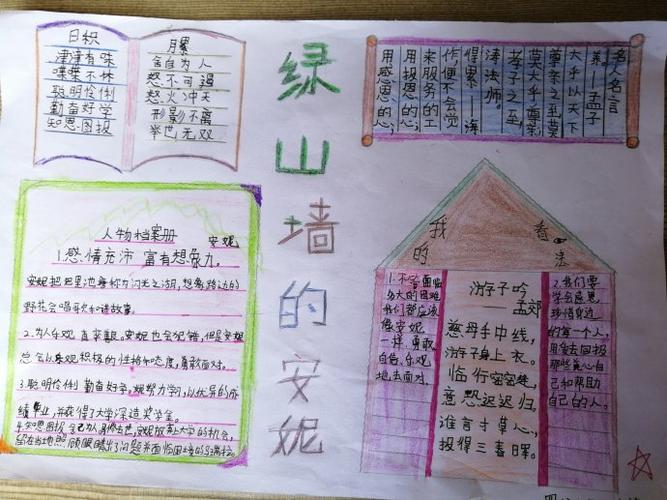 日积
津津有味
喋喋不休
聪明伶俐
勤奋好学
知恩图报
月累
舍自为人
怒不可遏
怒火冲天
形影不离
举世无双
绿山墙的安妮
名人名言
养——孟子
大乎以天下
尊亲之至莫
莫大乎尊亲
孝子之至
涛法师。
惺累——海
作，便不会觉
来服务的工
用报恩的心
用感恩的心，
人物档案册
安妮
1.感情充沛 富有想象力。
安妮把巴里池塘称为闪光之湖，想象路边的
野花会唱歌和谜故事。
2.为人乐观 直率
安妮也会犯错，但是安妮
总会以乐观积极的性格和态度，勇敢面对。
3.聪明伶俐 勤奋好学
努力学习，以优异的成
绩毕业，并获得了大学深造奖学金。
4.知恩图报
安妮放弃上大学的机会，
留在当地照顾眼睛出了问题
我的看法
1.不管面临
多大的困难
我们都应该
像安妮
一样，勇敢
自信、乐观
地去面对。
游子吟
——孟郊
慈母手中线，
游子身上衣。
临行密密缝，
意恐迟迟归。
谁言寸草心，
报得三春晖。
2.我们要
学会感恩，
珍惜身边
的每一个人，
用爱去回报
那些关心自
己和帮助
自己的人。